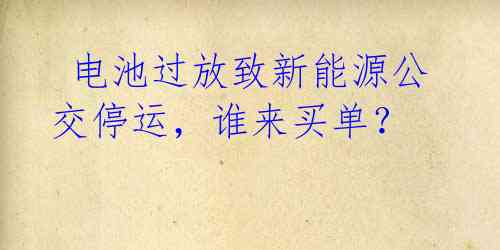 电池过放致新能源公
交停运，谁来买单？